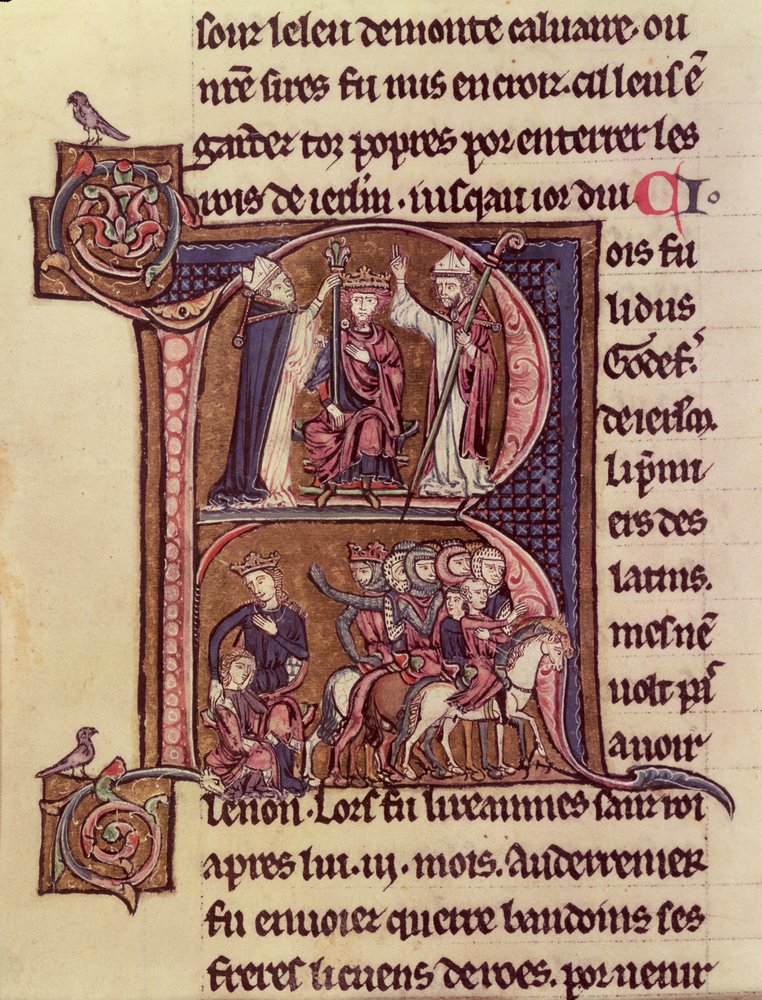 sour le leu de monte caluaire. ou
nr̄e sires fu mis en croiz. cil leus ē
gardez toz ꝓpres por enterrer les
rois de ierl'm. iusqau ior dui
R
ois fu
li dus
Godef'.
de ierl'm.
li p'mi
ers des
latins.
mes nē
uolt p'
auoir
le non. Lors fu li reaumes sanz roi
apres lui .iij. mois. Au derrenier
fu enuoiez querre baudoins ses
freres li cuens de roes. por uenir